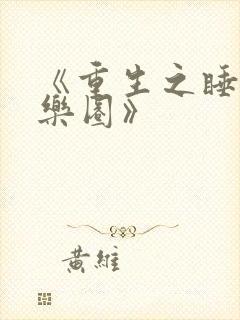 《重生之睡
樂園》
黃維